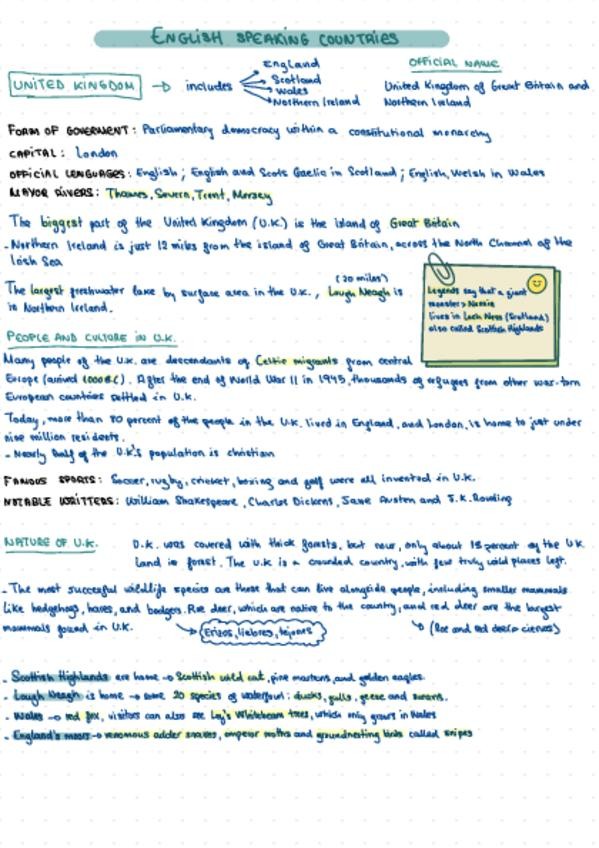 ENGLISH SPEAKING COUNTRIES
OFFICIAL NAME
UNITED KINGDOM → includes
England
Scotland
Wales
Northern Ireland
United Kingdom of Great Britain and
Northern Ireland
FORM OF GOVERMENT: Parliamentary democracy within a constitutional monarchy
CAPITAL: London
OFFICIAL LENGUAGES: English; English and Scots Gaelic in Scotland; English, Welsh in Wales
MAYOR RIVERS: Thames, Severn, Trent, Mersey
The biggest part of the United Kingdom (U.K.) is the island of Great Britain
- Northern Ireland is just 12 miles from the island of Great Britain, across the North Channel of the
Irish Sea
(20 miles)
The largest freshwater lake by surface area in the U.K., Lough Neagh is
in Northern Ireland.
Legends say that a giant
monster > Nessie
lives in Loch Ness (Scotland)
also called Scottish Highlands
PEOPLE AND CULTURE IN U.K.
Many people of the U.K. are descendants of Celtic migrants from central
Europe (arrived 1000 B.C). After the end of World War II in 1945, thousands of refugees from other war-torn
European countries settled in U.K.
Today, more than 80 percent of the people in the U.K. lived in England, and London, is home to just under
nine million residents.
- Nearly half of the U.K's population is christian
FAMOUS SPORTS: Soccer, rugby, cricket, boxing and golf were all invented in U.K.
NOTABLE WRITTERS: William Shakespeare, Charles Dickens, Jane Austen and J.K. Rowling
NATURE OF U.K.
U.K. was covered with thick forests, but now, only about 13 percent of the U.K
land is forest. The U.K is a crowded country, with few truly wild places left.
- The most succesful wildlife species are those that can live alongside people, including smaller mammals
like hedgehogs, hares, and badgers. Roe deer, which are native to the country, and red deer are the largest
mammals found in U.K.
Erizos, liebres, tejones
(Roe and red deer > ciervos)
- Scottish Highlands are home → Scottish wild cat, pine martens, and golden eagles.
- Lough Neagh is home → some 20 species of waterfowl: ducks, gulls, geese and swans.
- Wales → red fox, visitors can also see Ley's Whitebeam trees, which only grows in Wales
- England's moors → venomous adder snakes, emperor moths and groundnesting birds called snipes